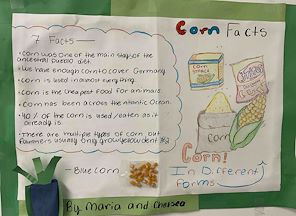 7 Facts
• Corn was one of the main stays of the
ancestral pueblo diet.
• We have enough corn to cover Germany
• Corn is used in almost every thing.
• Corn is the cheapest food for animals
• Corn has been across the Atlantic Ocean.
• 40% of the corn is used/eaten as it
already is.
• There are multiple types of corn but
farmers usually only grow yellow dent #2
- Blue Corn
By Maria and Chelsea
Corn Facts
CORN
STARCH
corn
Corn!
In Different
Forms